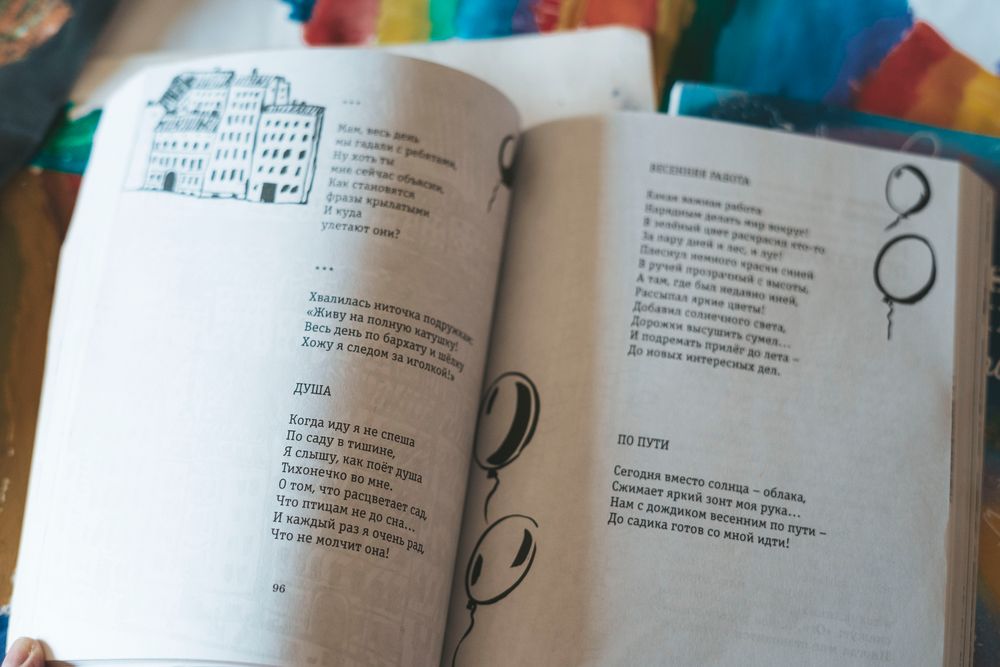 ...
Мам, весь день
мы гадали с ребятами,
Ну хоть ты
мне сейчас объясни,
Как становятся
фразы крылатыми
И куда
улетают они?
...
Хвалилась ниточка подружкам:
«Живу на полную катушку!
Весь день по бархату и шёлку
Хожу я следом за иголкой!»
ДУША
Когда иду я не спеша
По саду в тишине,
Я слышу, как поёт душа
Тихонечко во мне.
О том, что расцветает сад,
Что птицам не до сна...
И каждый раз я очень рад,
Что не молчит она!
96
ВЕСЕННЯЯ РАБОТА
Какая важная работа
Нарядным делать мир вокруг!
В зелёный цвет раскрасил кто-то
За пару дней и лес, и луг!
Плеснул немного краски синей
В ручей прозрачный с высоты,
А там, где был недавно иней,
Рассыпал яркие цветы!
Добавил солнечного света,
Дорожки высушить сумел...
И подремать прилёг до лета –
До новых интересных дел.
ПО ПУТИ
Сегодня вместо солнца – облака,
Сжимает яркий зонт моя рука...
Нам с дождиком весенним по пути –
До садика готов со мной идти!